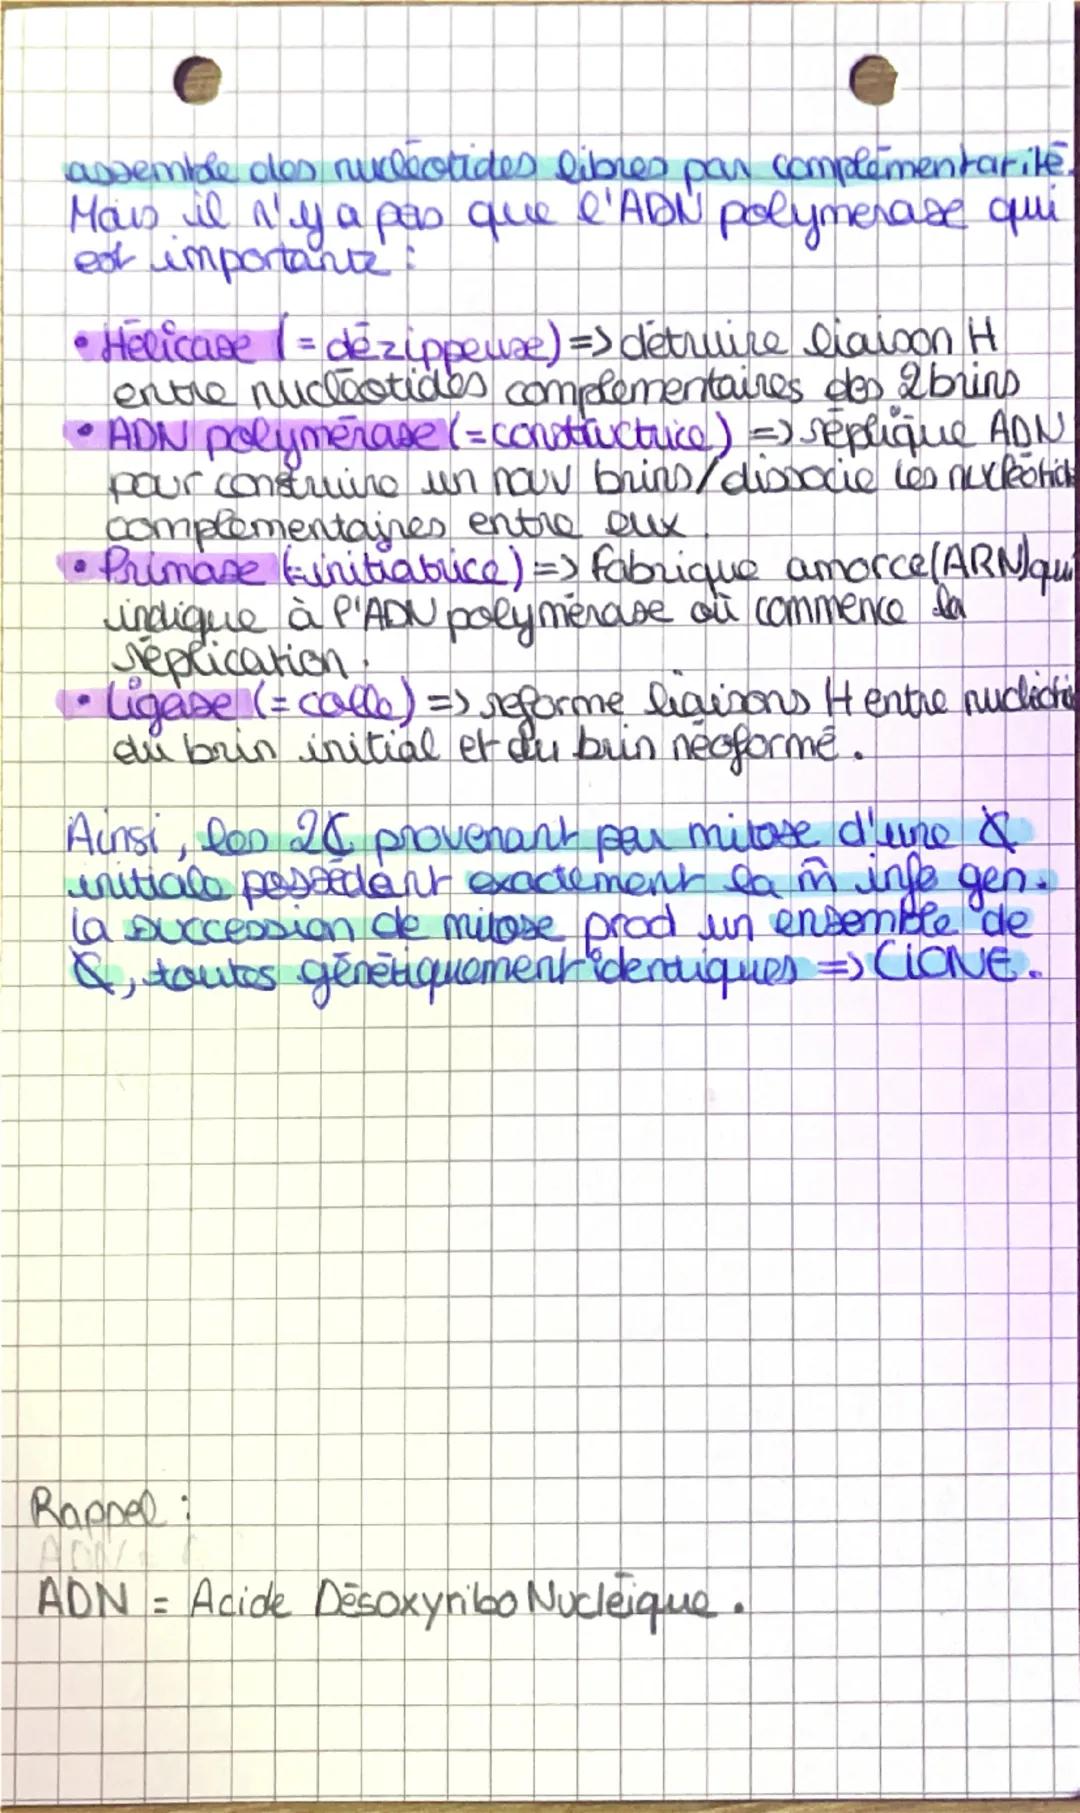 assemble des nucléotides libres par complémentarité.
Mais il n'y a pas que l'ADN polymerase qui
est importante :
• Hélicase (= dézippeuse) => détruire liaison H
entre nucléotides complementaires des 2 brins
• ADN polymérase (= constructrice) => réplique ADN
pour construire un nouv brins/dissocie les nucléotid
complementaires entre eux.
• Primase (= initiatrice) => fabrique amorce (ARN) qui
indique à l'ADN polymérase où commence la
réplication.
• Ligase (= colle) => reforme liaisons H entre nucléoti
du brin initial et du brin néoformé.
Ainsi, les 2 provenant par mitose d'une
initiale possèdent exactement la m̂ info gen.
La succession de mitose prod un ensemble de
, toutes génétiquement identiques => CLONE.
Rappel :
ADN = Acide DésoxyriboNucléique.